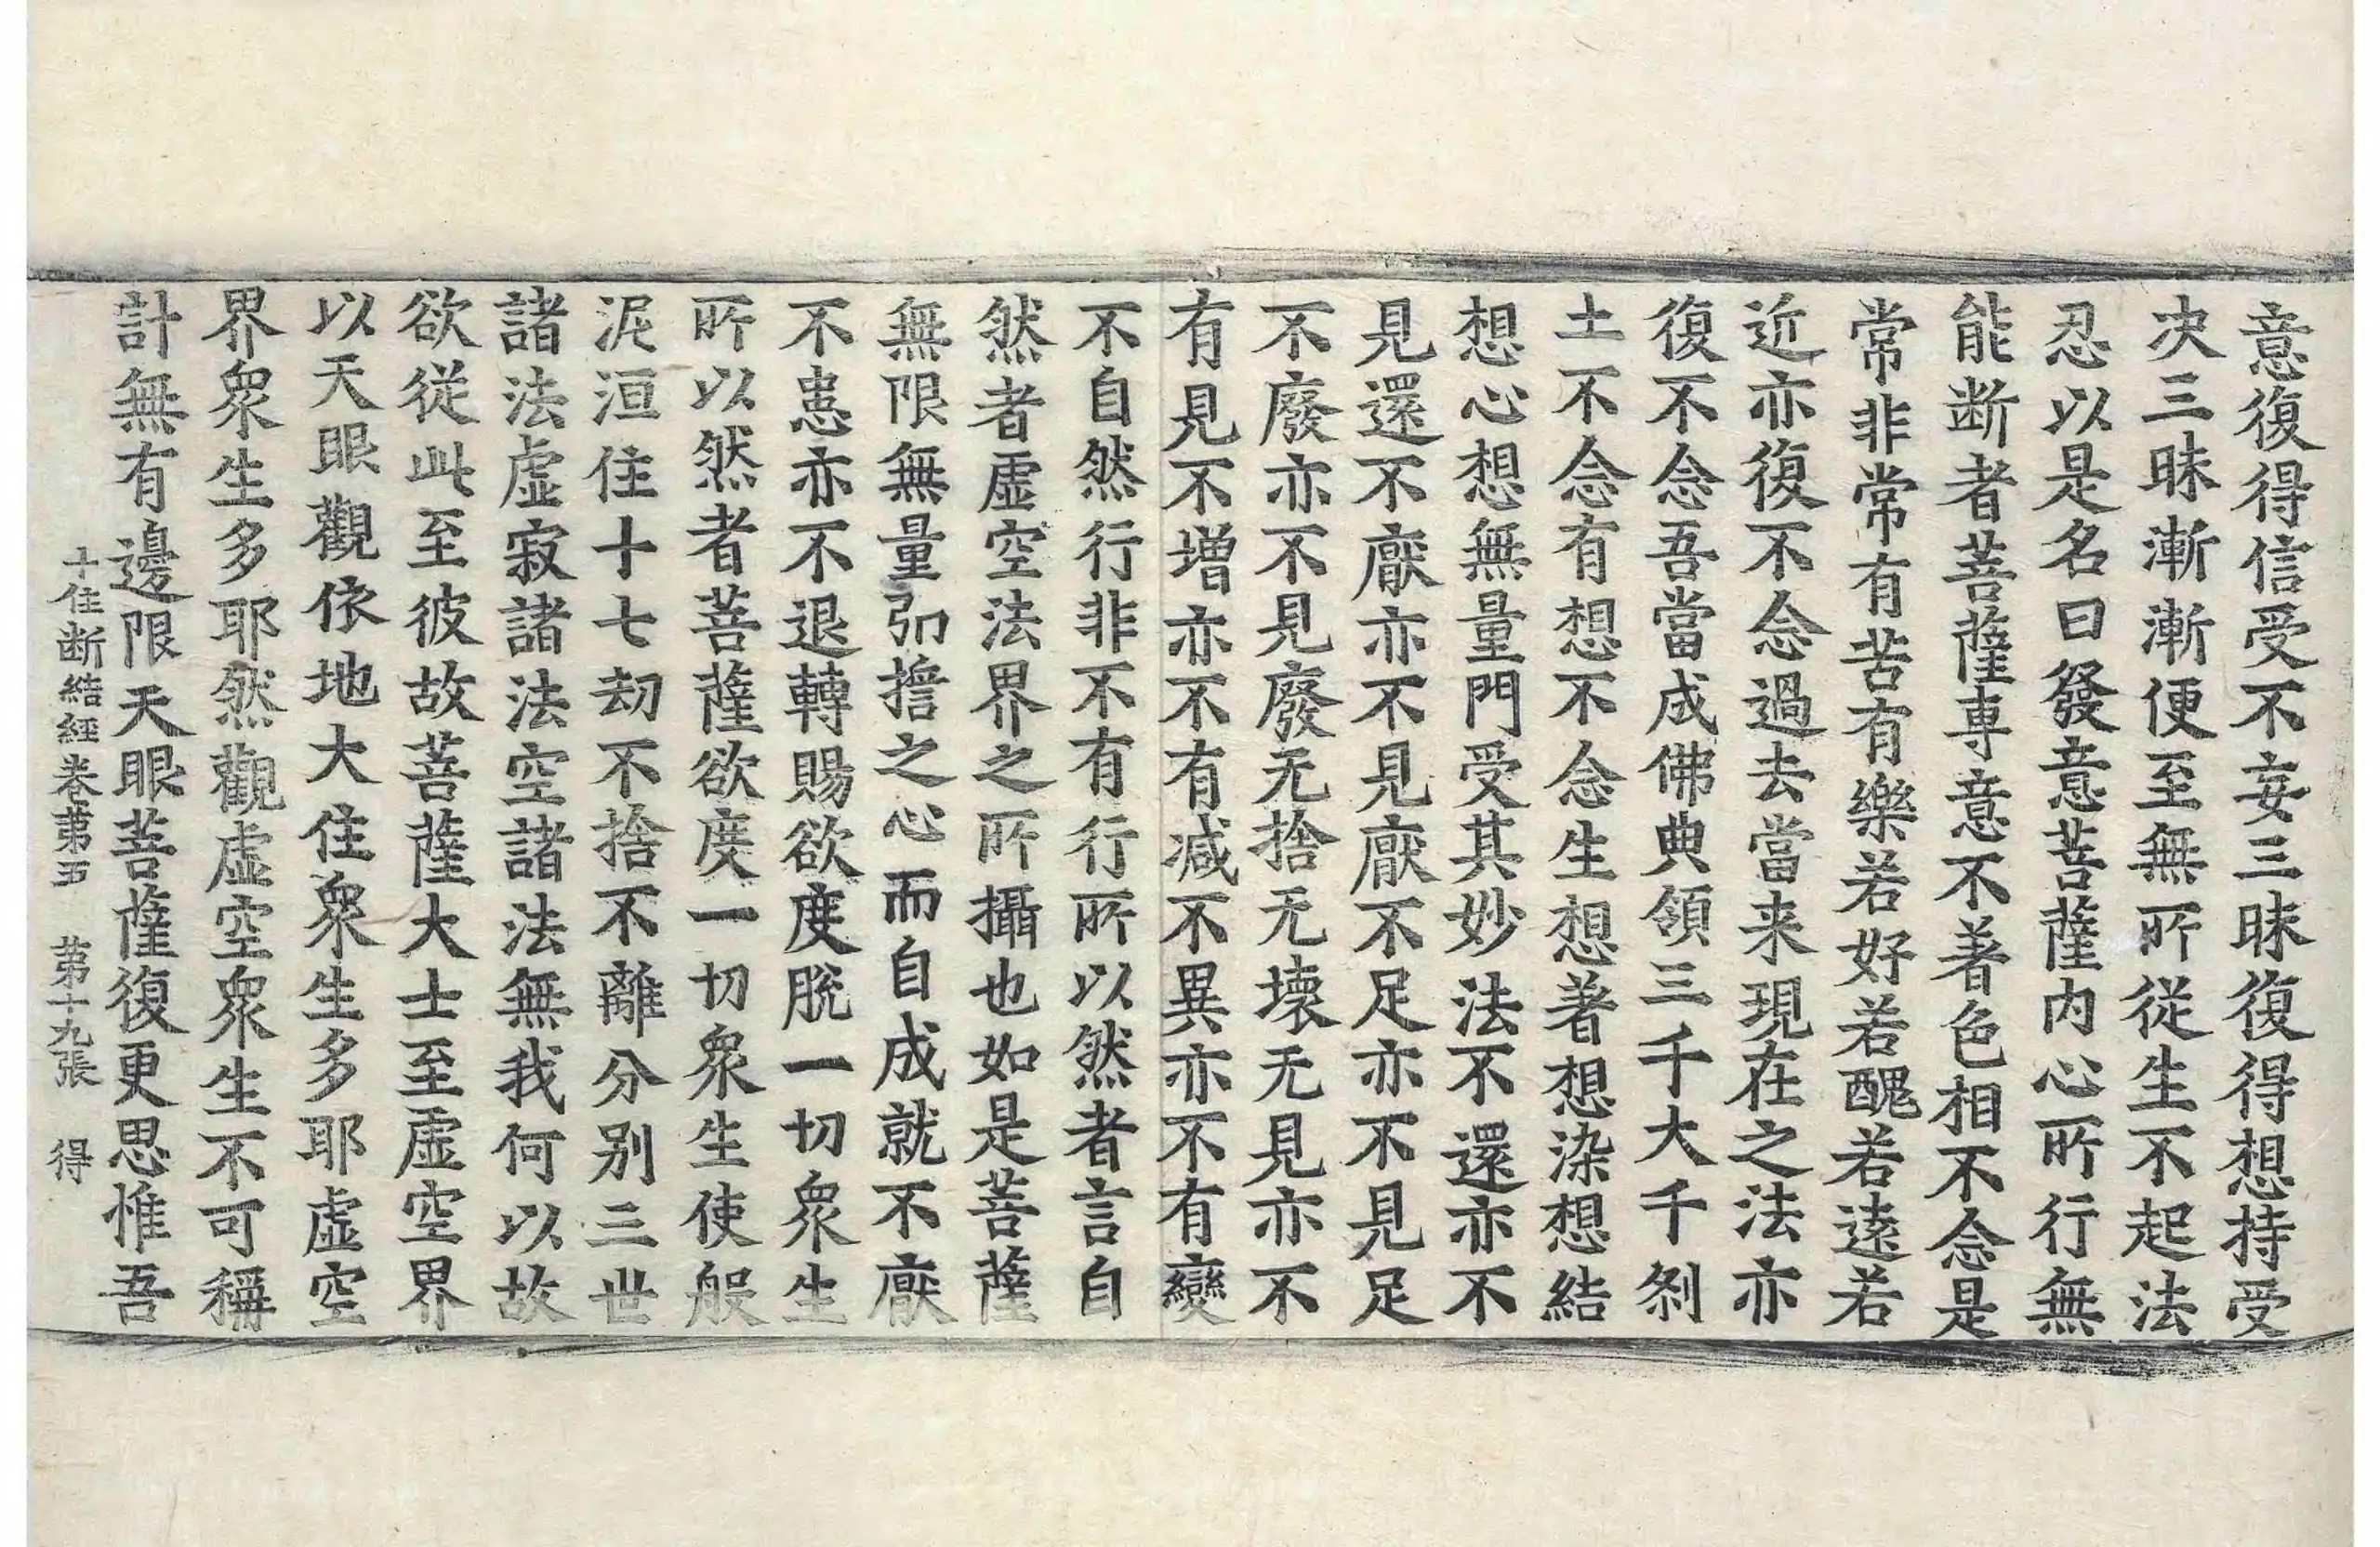 意復得信受不妄三昧復得想持受
决三昧漸漸便至無所從生不起法
忍以是名曰發意菩薩內心所行無
能断者菩薩專意不著色相不念是
常非常有苦有樂若好若醜若遠若
近亦復不念過去當来現在之法亦
復不念吾當成佛典領三千大千刹
土不念有想不念生想著想染想結
想心想無量門受其妙法不還亦不
見還不厭亦不見厭不足亦不見足
不廢亦不見廢无捨无壞无見亦不
有見不增亦不有减不異亦不有變
不自然行非不有行所以然者言自
然者虛空法界之所攝也如是菩薩
無限無量弘擔之心而自成就不厭
不恚亦不退轉賜欲度脫一切衆生
所以然者菩薩欲度一切衆生使般
泥洹住十七劫不捨不離分別三世
諸法虛寂諸法空諸法無我何以故
欲從此至彼故菩薩大士至虛空界
以天眼觀依地大住衆生多耶虛空
界衆生多耶然觀虛空衆生不可稱
計無有邊限天眼菩薩復更思惟吾
十住断結經卷第五 第十九張 得